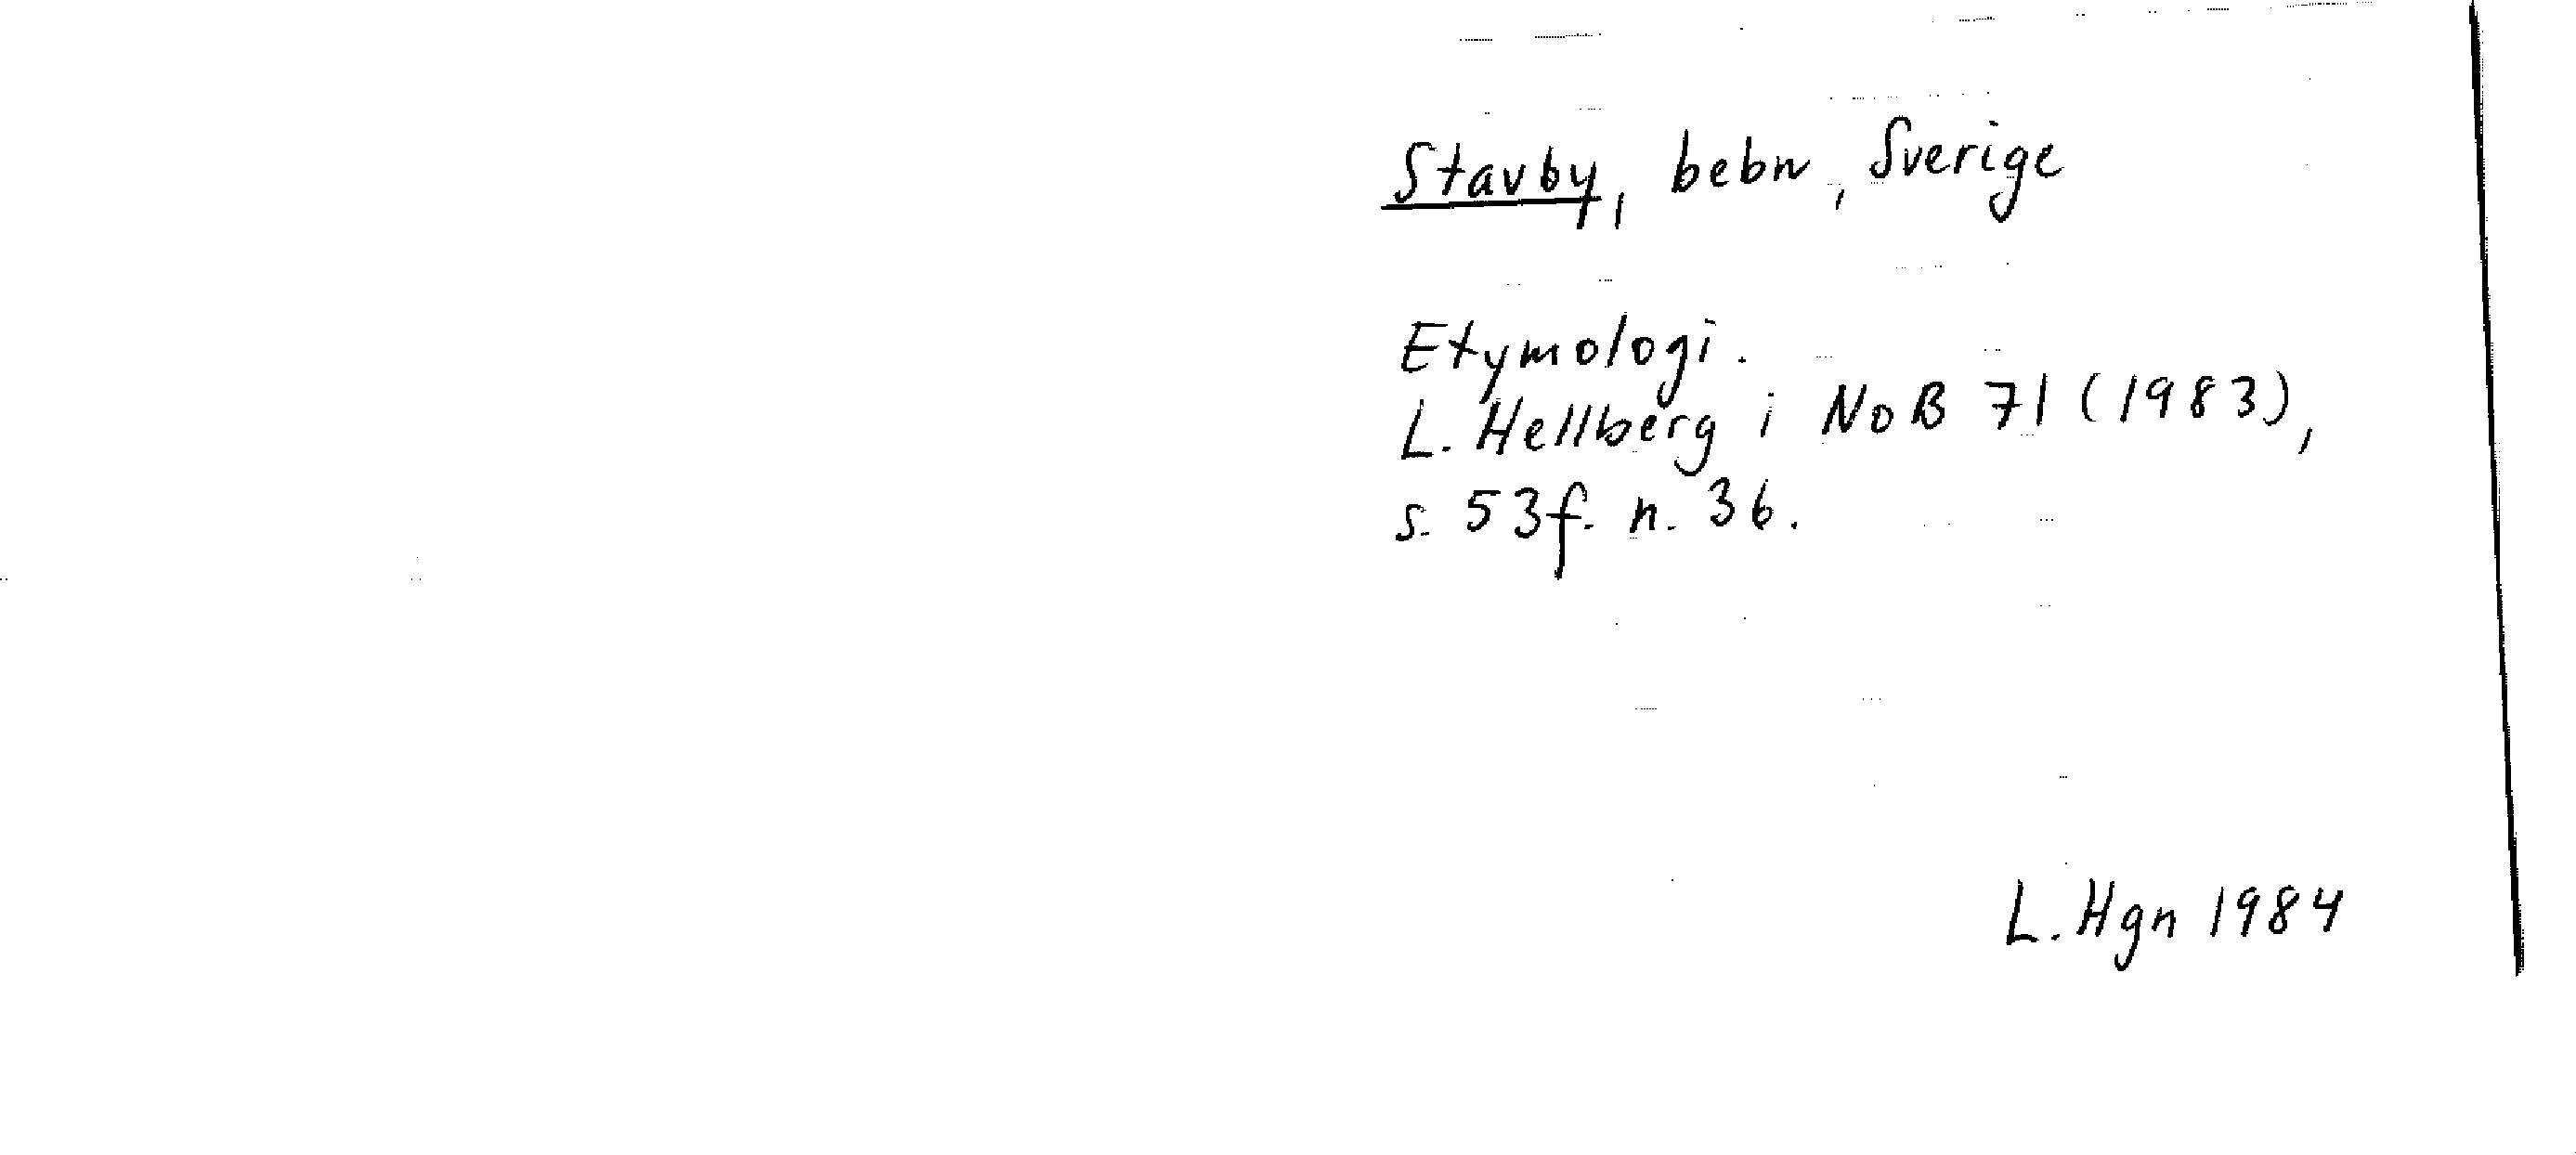 Stavby, bebn, Sverige
Etymologi.
L. Hellberg i NoB 71 (1983),
s. 53f. n. 36.
L. Hgn 1984